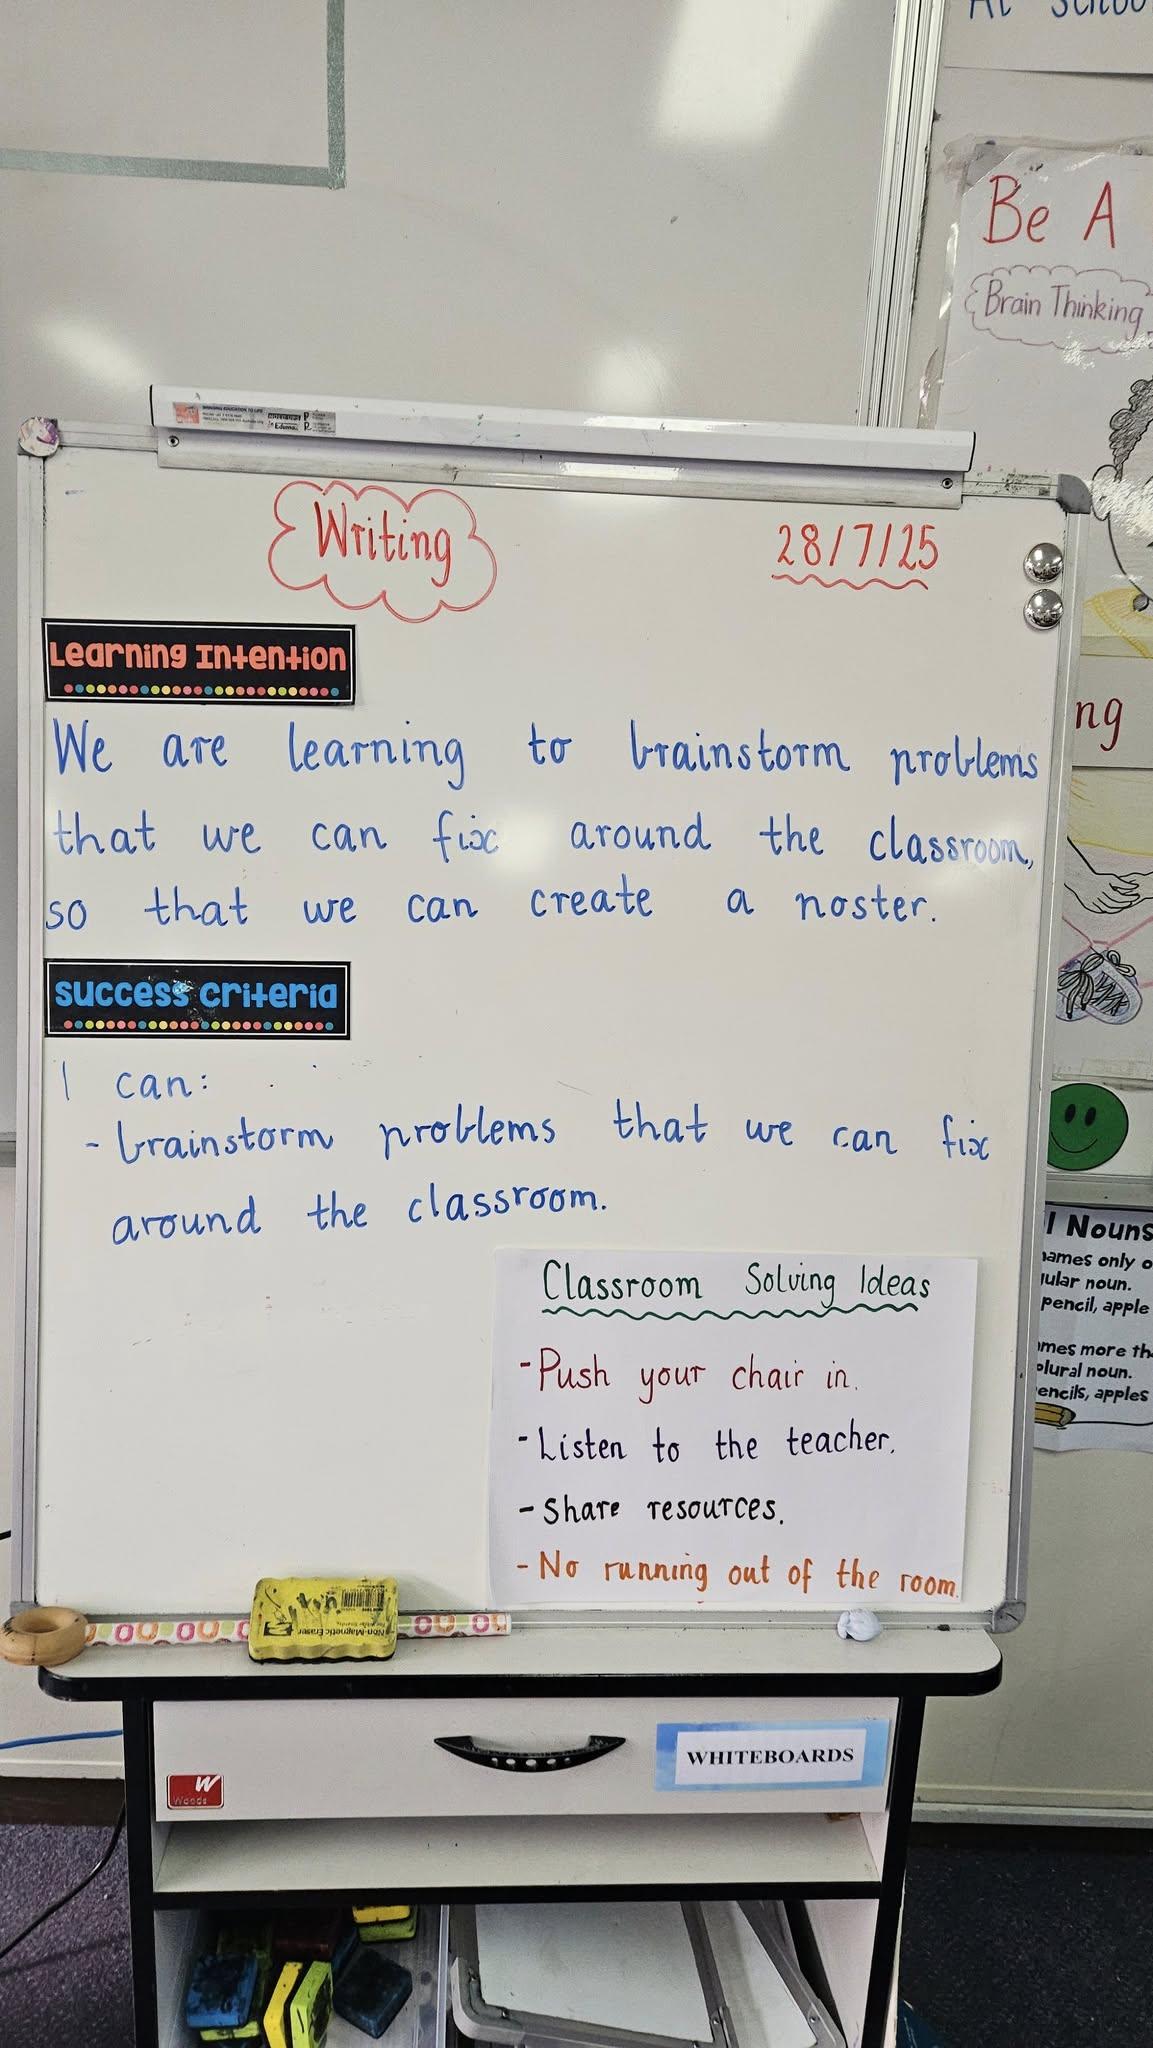 At School
Be A
Brain Thinking
BRINGING EDUCATION TO LIFE
Writing
28/7/25
Learning Intention
We are learning to brainstorm problems
that we can fix around the classroom,
so that we can create a noster.
ng
Success Criteria
I can:
- brainstorm problems that we can fix
around the classroom.
Classroom Solving Ideas
- Push your chair in.
- Listen to the teacher.
- Share resources.
- No running out of the room.
l Nouns
names only o
gular noun.
pencil, apple
ames more th
plural noun.
encils, apples
Non-Magnetic Eraser
WHITEBOARDS
W
Woods